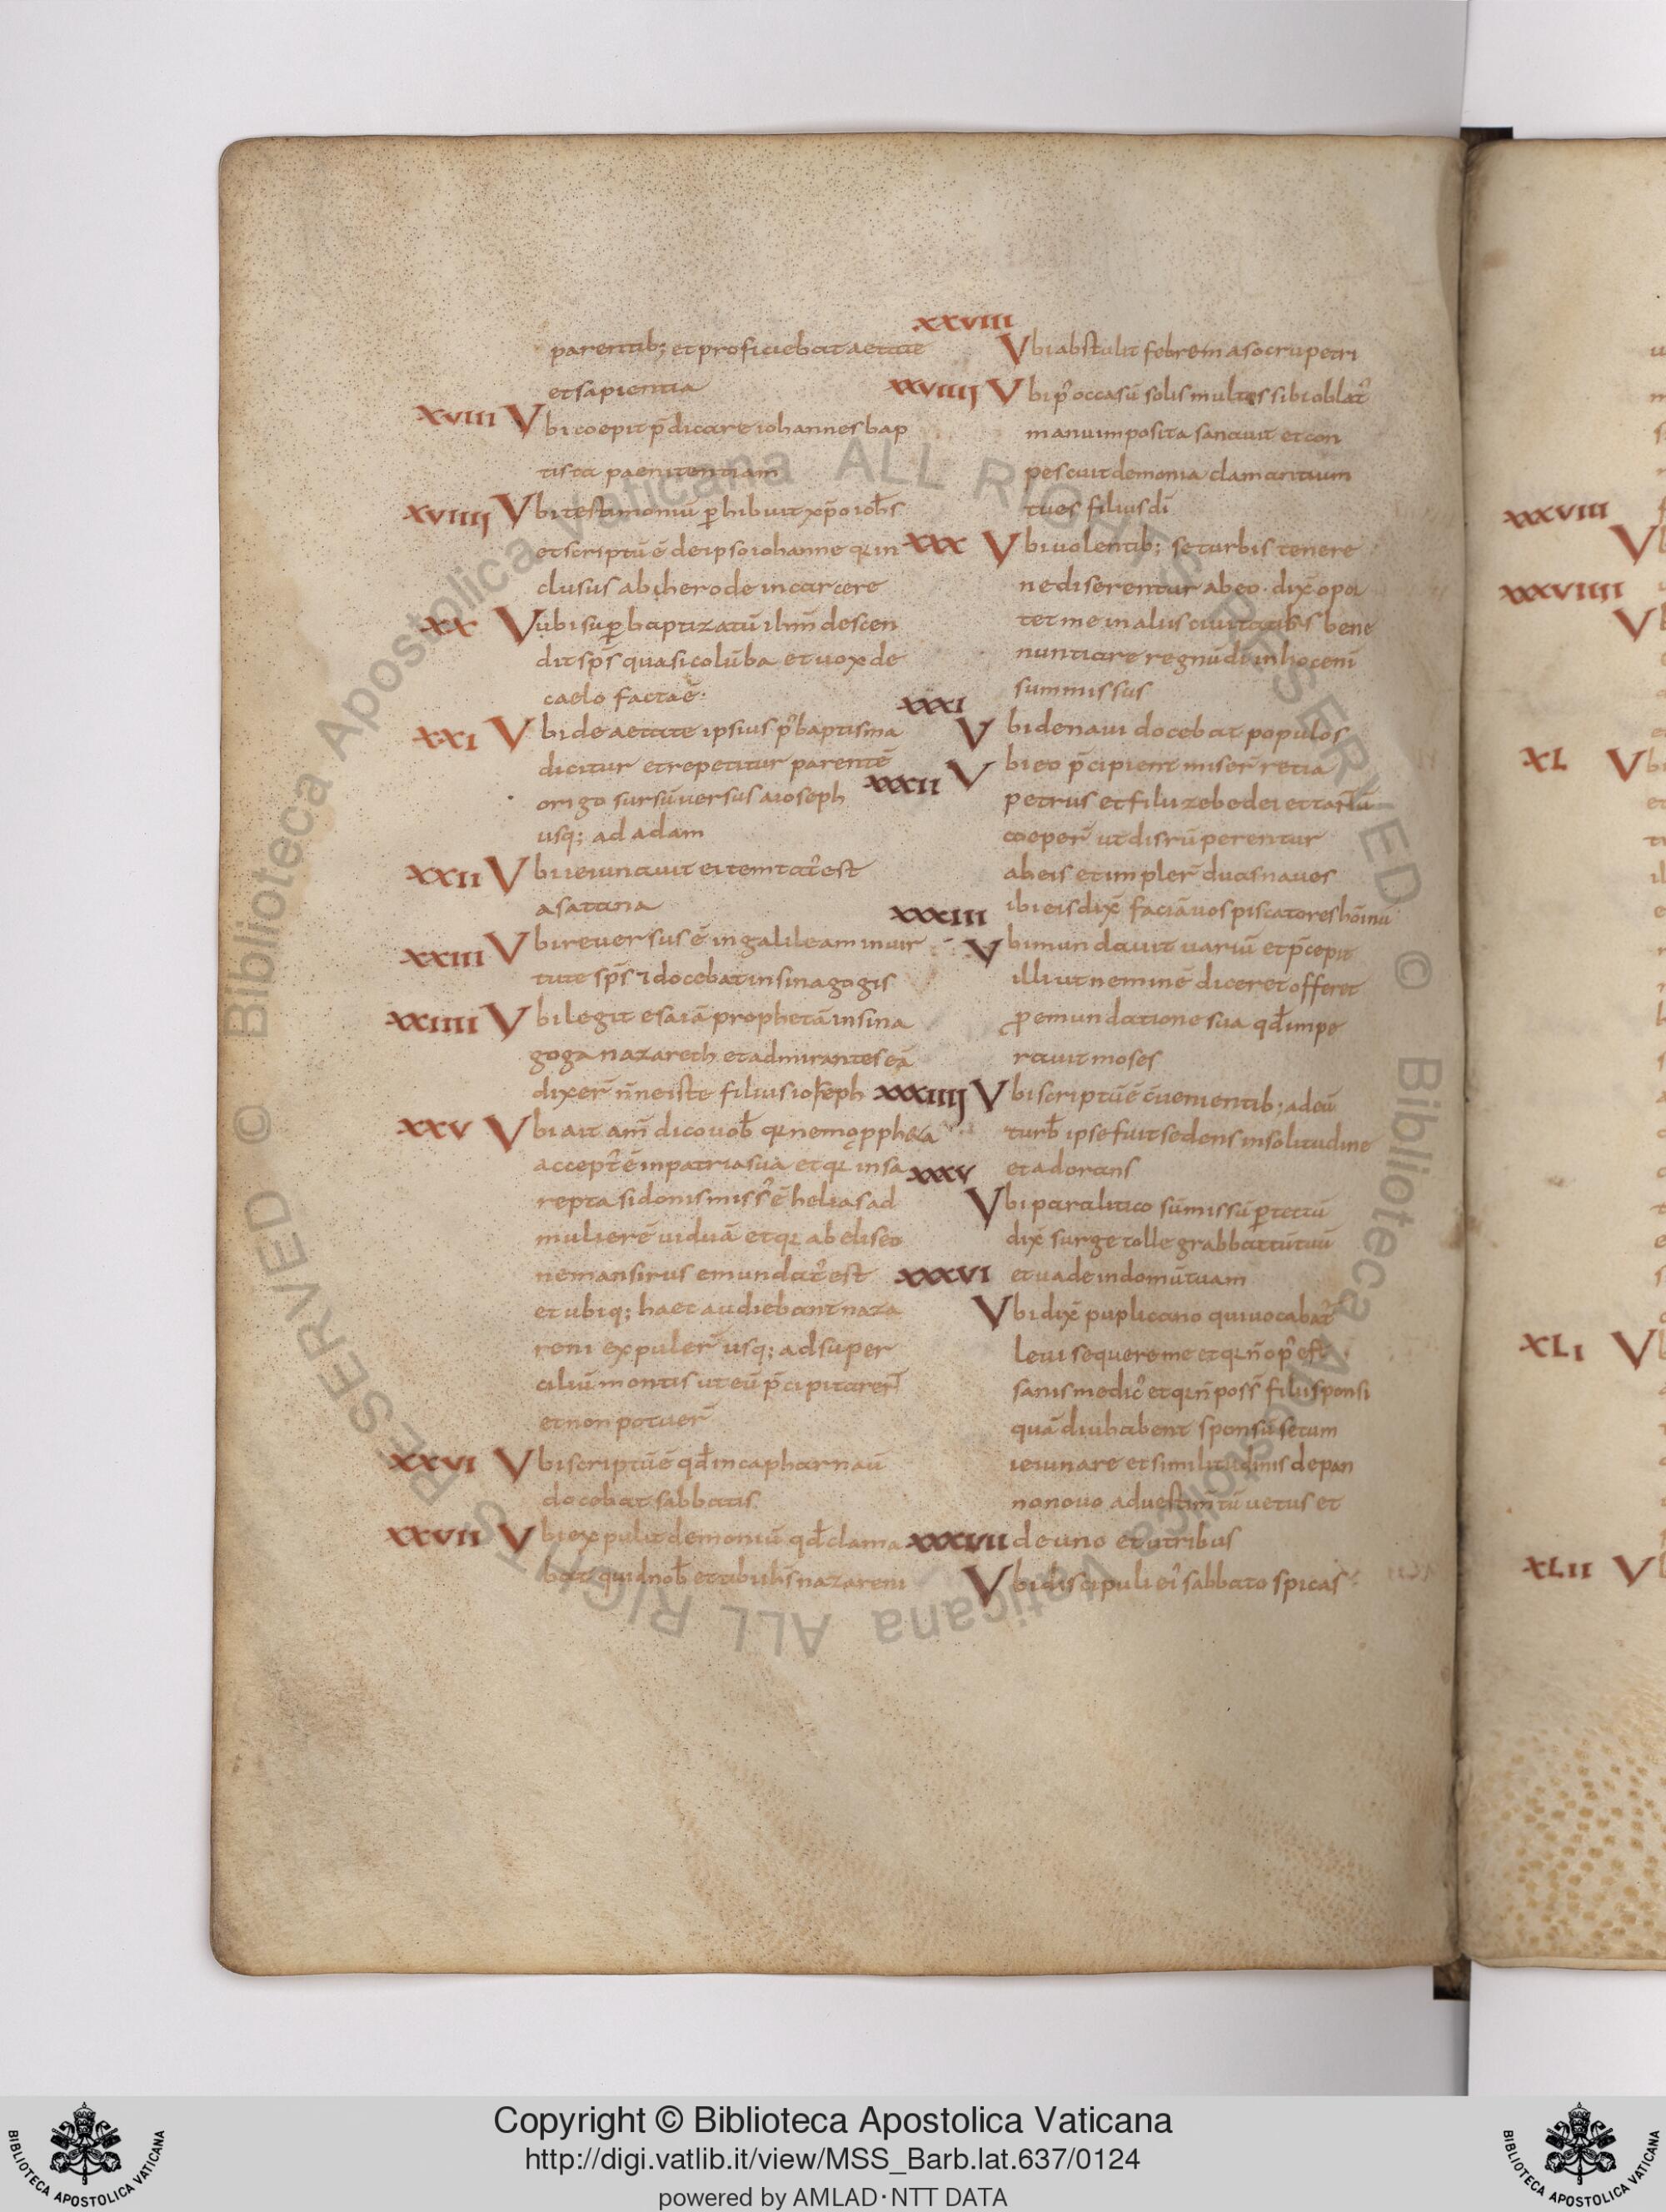 parentib; et proficiebat aetate
et sapientia
XVIII Vbi coepit p̄dicare iohannes bap
tista paenitentiam
XVIIIJ Vbi testimoniū ꝑhibuit xp̄o ioh̄s
et scriptū ē de ipso iohanne qꝛ in
clusus ab herode in carcere
XX Vubi suꝑ baptizatū ih̄m̄ descen
dit sp̄s quasi colūba et uox de
caelo facta ē·
XXI Vbi de aetate ipsius p᾿ baptisma
dicitur et repetitur parentē
origo sursū uersus a ioseph
usq; ad adam
XXII Vbi ieiunauit et temtat᾿ est
a satana
XXIII Vbi reuersus ē in galileam in uir
tute sp̄s ⁊ docebat in sinagogis
XXIIII Vbi legit esaiā prophetā in sina
goga nazareth et admirantes eā
dixer̄ n̄ne iste filius ioseph
XXV Vbi ait am̄ dico uob̄ qꝛ nemo ppheta
accept᾿ ē in patria sua et qꝛ in sa
repta sidonis miss᾿ ē helias ad
mulierē uiduā et qꝛ ab eliseo
neman sirus emundat᾿ est
et ubiq; haec audiebant naza
reni expuler̄ usq; ad super
ciliū montis ut eū p̄cipitarent̄
et non potuer̄
XXVI Vbi scriptū ē qd̄ in capharnaū
docebat sabbatis
XXVII Vbi expulit demoniū qd̄ clama
bat quid nob̄ et tibi ih̄s nazareni
XXVIII
Vbi abstulit febrem a socru petri
XXVIIIJ Vbi p᾿ occasū solis multos sibi oblat᾿
manu imposita sanauit et con
pescuit demonia clamantium
tu es filius dī
XXX Vbi uolentib; se turbis tenere
ne diserentur ab eo · dix̄ opor
tet me in aliis ciuitatib;s bene
nuntiare regnū dī in hoc eni̅
sum missus
XXXI
Vbi de naui docebat populos
XXXII Vbi eo p̄cipient miser̄ retia
petrus et filii zebedei et tantū
coeper̄ ut disrūperentur
ab eis et impler̄ duas naues
ibi eis dix̄ faciā uos piscatores hōinū
XXXIII
Vbi mundauit uariū et p̄cepit
illi ut neminē diceret offeret
ꝓ emundatione sua qd̄ impe
rauit moses
XXXIIIJ Vbi scriptū ē c̄uenientib; ad eū
turb̄ ipse fuit sedens in solitudine
et adorans
XXXV
Vbi paralitico sūmissū ꝑ tectū
dix̄ surge tolle grabbattū tuū
et uade in domū tuam
XXXVI
Vbi dix̄ puplicano qui uocabat᾿
leui sequere me et qꝛ n̄ op᾿ est
sanis medic᾿ et qꝛ n̄ poss̄ filii sponsi
quādiu habent sponsū secum
ieiunare et similitudinis de pan
no nouo ad uestim̄tū uetus et
de uino et utribus
XXXVII
Vbi discipuli ei᾿ sabbato spicas
XXXVIII
XXXVIIII
XL
XLI
XLII
© Biblioteca Apostolica Vaticana ALL RIGHTS RESERVED © Biblioteca Apostolica Vaticana ALL RIGHTS RESERVED
Copyright © Biblioteca Apostolica Vaticana
http://digi.vatlib.it/view/MSS_Barb.lat.637/0124
powered by AMLAD・NTT DATA
BIBLIOTECA APOSTOLICA VATICANA
BIBLIOTECA APOSTOLICA VATICANA